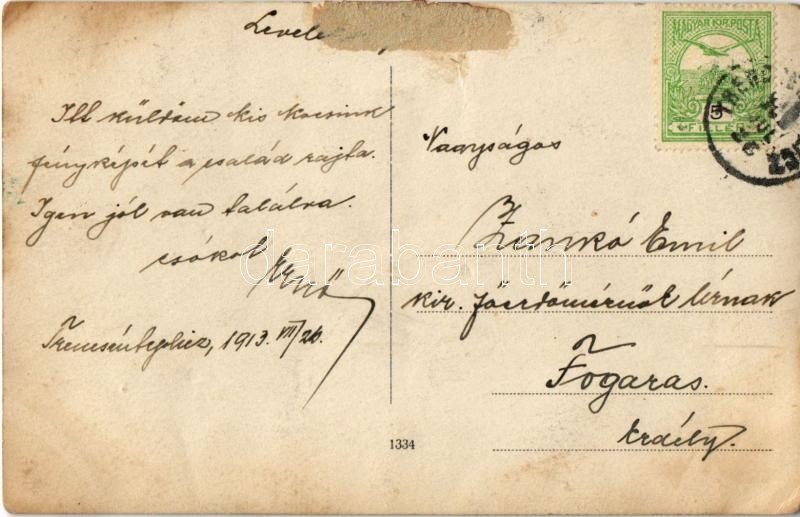 Levele
Itt küldöm kis kocsink
fényképét a család rajta.
Igen jól van találva.
csókol Ernő
Trencsénteplicz, 1913. VII/26.
MAGYAR KIR. POSTA
5
FILLÉR
Nagyságos
Zankó Emil
kir. főerdőmérnök úrnak
Fogaras.
Erdély.
1334
darabanth